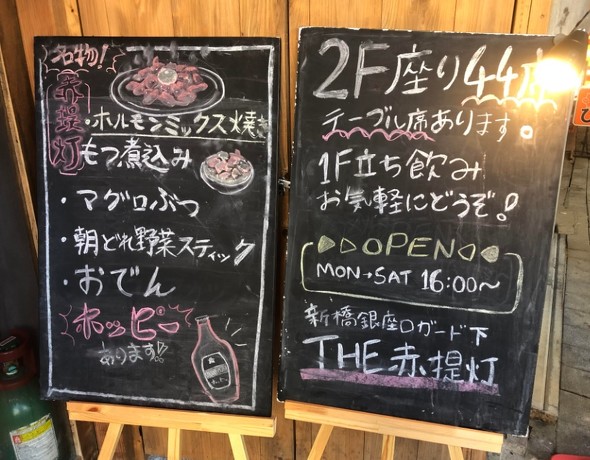 名物!
赤提灯
・ホルモンミックス焼き
もつ煮込み
・マグロぶつ
・朝どれ野菜スティック
・おでん
ホッピー
あります!!
2F座り44席
テーブル席あります。
1F立ち飲み
お気軽にどうぞ!
OPEN
MON→SAT 16:00〜
新橋銀座口ガード下
THE赤提灯